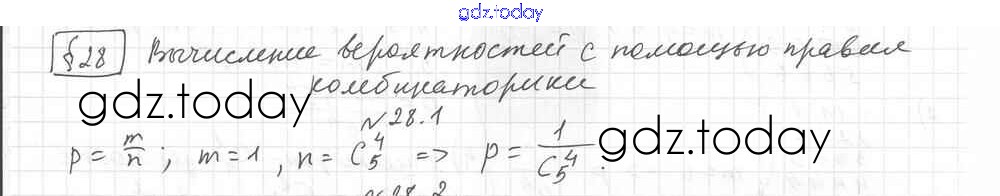 gdz.today
§28 Вычисление вероятностей с помощью правил
комбинаторики
gdz.today
№28.1
p = m/n; m=1, n= C₅⁴ => p = 1/C₅⁴.
gdz.today
№28.2